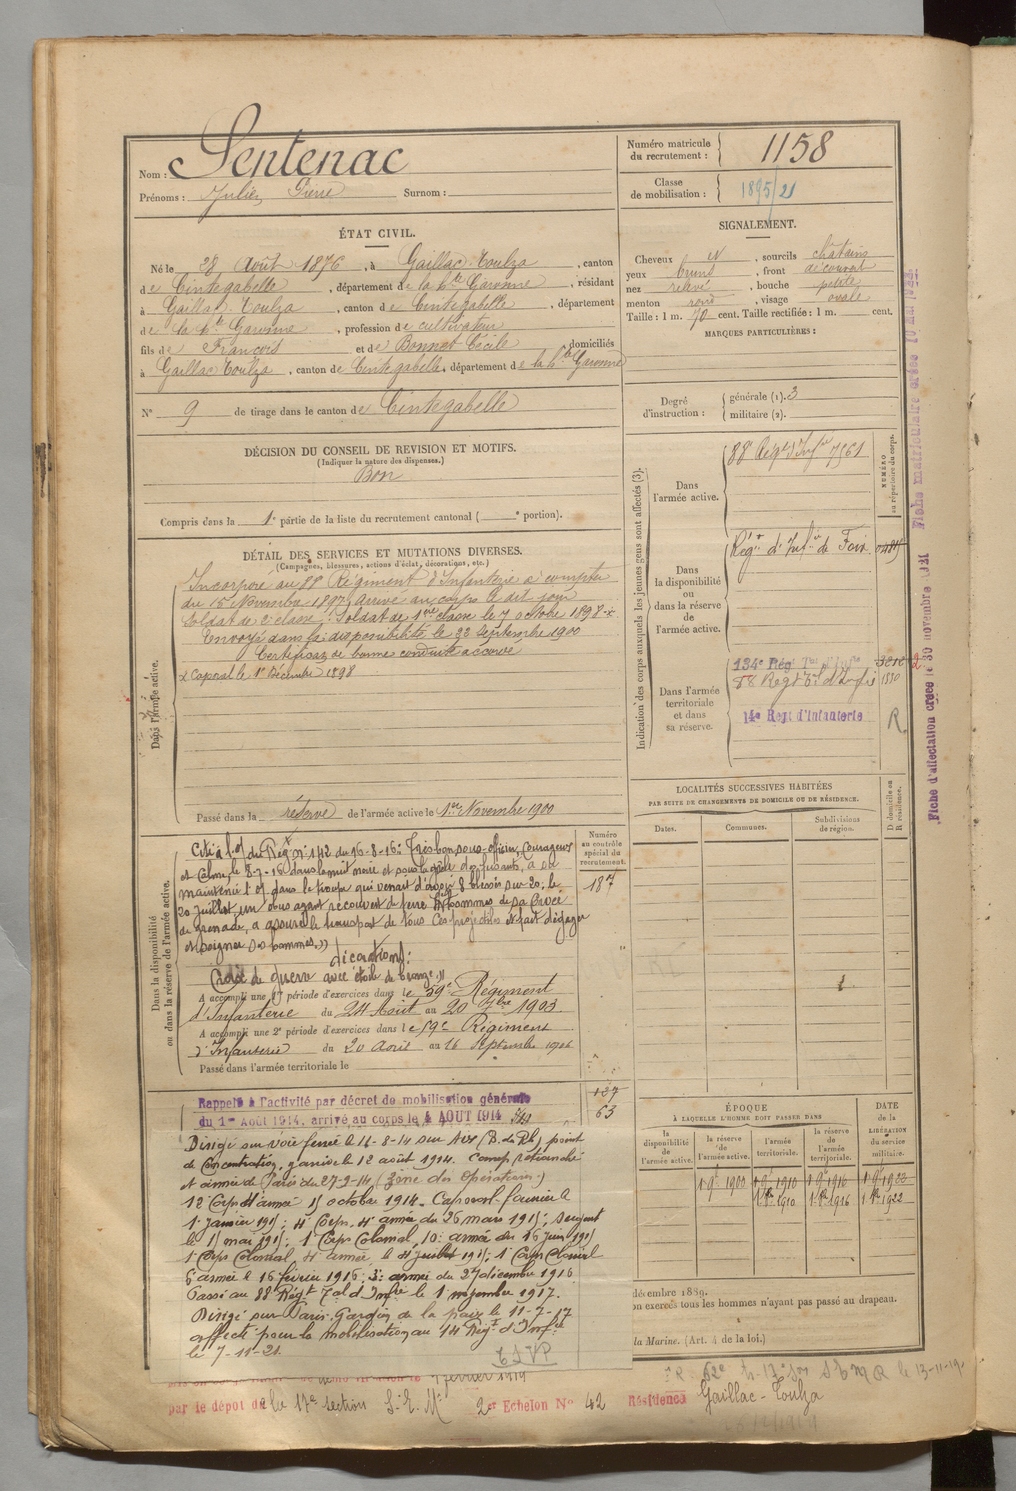 Nom : Sentenac
Prénoms : Julien Pierre Surnom :
Numéro matricule
du recrutement : 1158
Classe
de mobilisation : 1895/21
ÉTAT CIVIL.
Né le 28 Août 1876, à Gaillac-Toulza, canton
de Cintegabelle, département de la Hte Garonne, résidant
à Gaillac-Toulza, canton de Cintegabelle, département
de la Hte Garonne, profession de cultivateur
fils de François et de Bonnet Cécile, domiciliés
à Gaillac Toulza, canton de Cintegabelle, département de la Hte Garonne
N° 9 de tirage dans le canton de Cintegabelle
SIGNALEMENT.
Cheveux et, sourcils châtains
yeux bruns, front découvert
nez relevé, bouche petite
menton rond, visage ovale
Taille : 1 m. 70 cent. Taille rectifiée : 1 m. cent.
MARQUES PARTICULIÈRES :
Degré
d'instruction :
générale (1). 3
militaire (2).
DÉCISION DU CONSEIL DE REVISION ET MOTIFS.
(Indiquer la nature des dispenses.)
Bon
Compris dans la 1e partie de la liste du recrutement cantonal ( e portion).
DÉTAIL DES SERVICES ET MUTATIONS DIVERSES.
(Campagnes, blessures, actions d'éclat, décorations, etc.)
Dans l'armée active.
Incorporé au 88 Régiment d'Infanterie à compter
du 15 Novembre 1897, arrivé au corps le dit jour
Soldat de 2e classe, Soldat de 1ere classe le 7 octobre 1898 x
Envoyé dans la disponibilité le 22 Septembre 1900
Certificat de bonne conduite accordé
x Caporal le 1er Décembre 1898
Passé dans la réserve de l'armée active le 1er Novembre 1900
Indication des corps auxquels les jeunes gens sont affectés (3).
NUMÉRO
au répertoire du corps.
Dans
l'armée active.
88e Régt d'Infie 7561
Dans
la disponibilité
ou
dans la réserve
de
l'armée active.
Régt d'Infie de Foix
Dans l'armée
territoriale
et dans
sa réserve.
134e Rég Ter d'Infie
14e Regt d'Infanterie
R
LOCALITÉS SUCCESSIVES HABITÉES
PAR SUITE DE CHANGEMENTS DE DOMICILE OU DE RÉSIDENCE.
Dates.
Communes.
Subdivisions
de région.
D domicile ou
R résidence.
Dans la disponibilité
ou dans la réserve de l'armée active.
Numéro
au contrôle
spécial du
recrutement.
187
Cité à l'o/ du Rég n° 142 du 16-8-16: Très bon sous-officier, courageux
et calme, le 8-7-16 dans la nuit noire et sous la grêle des fusants, a su
maintenir l'o/ dans la troupe qui venait d'avoir 8 blessés sur 20; le
20 juillet, un obus ayant recouvert de terre hommes de sa pièce
de grenade, a assuré le transport de tous ces projectiles et fait dégager
et soigner ses hommes.»
décorations:
Croix de guerre avec étoile de bronze.»
A accompli une 1e période d'exercices dans le 59e Régiment
d'Infanterie du 24 Août au 20 7bre 1903
A accompli une 2e période d'exercices dans le 59e Régiment
d'Infanterie du 20 Août au 16 Septembre 1906
Passé dans l'armée territoriale le
Rappelé à l'activité par décret de mobilisation générale
du 1er Août 1914, arrivé au corps le 4 AOUT 1914
63
Dirigé sur voie ferrée le 16-8-14 sur (B. du Rh) point
de concentration, y arrive le 12 août 1914. Camp retranché
et armée de Paris du 27-9-14 (Zone des Opérations)
12 Corps d'armée 15 octobre 1914. Caporal-fourrier le
1 janvier 1915; 4e Corps, 4e armée du 26 mars 1915; Sergent
le 15 mai 1915; 1 Corps Colonial, 10e armée du 16 juin 1915
1 Corps Colonial 4e armée, le 4 juillet 1915; 1 Corps Colonial
6e armée le 16 février 1916; 3e armée du 27 décembre 1916
Passé au 88 Régt d'Infie le 1 novembre 1917.
Dirigé sur Paris. Gardien de la paix le 11-7-17
affecté pour la mobilisation au 14 Régt d'Infie
le 7-11-21.
TSVP
ÉPOQUE
À LAQUELLE L'HOMME DOIT PASSER DANS
DATE
de la
LIBÉRATION
du service
militaire.
la
disponibilité
de
l'armée active.
la réserve
de
l'armée active.
l'armée
territoriale.
la réserve
de
l'armée
territoriale.
1 9e 1900 1 9e 1910 1 9e 1916 1 9e 1922
1 9e 1910 1 9e 1916 1 9e 1922
décembre 1889.
on exercés tous les hommes n'ayant pas passé au drapeau.
la Marine. (Art. 4 de la loi.)
février 1919
par le dépôt de la 17e section 2er Echelon N° 42 Résidence Gaillac-Toulza
Fiche matriculaire créée 10 mai 1922
Fiche d'affectation créée le 30 novembre 1921